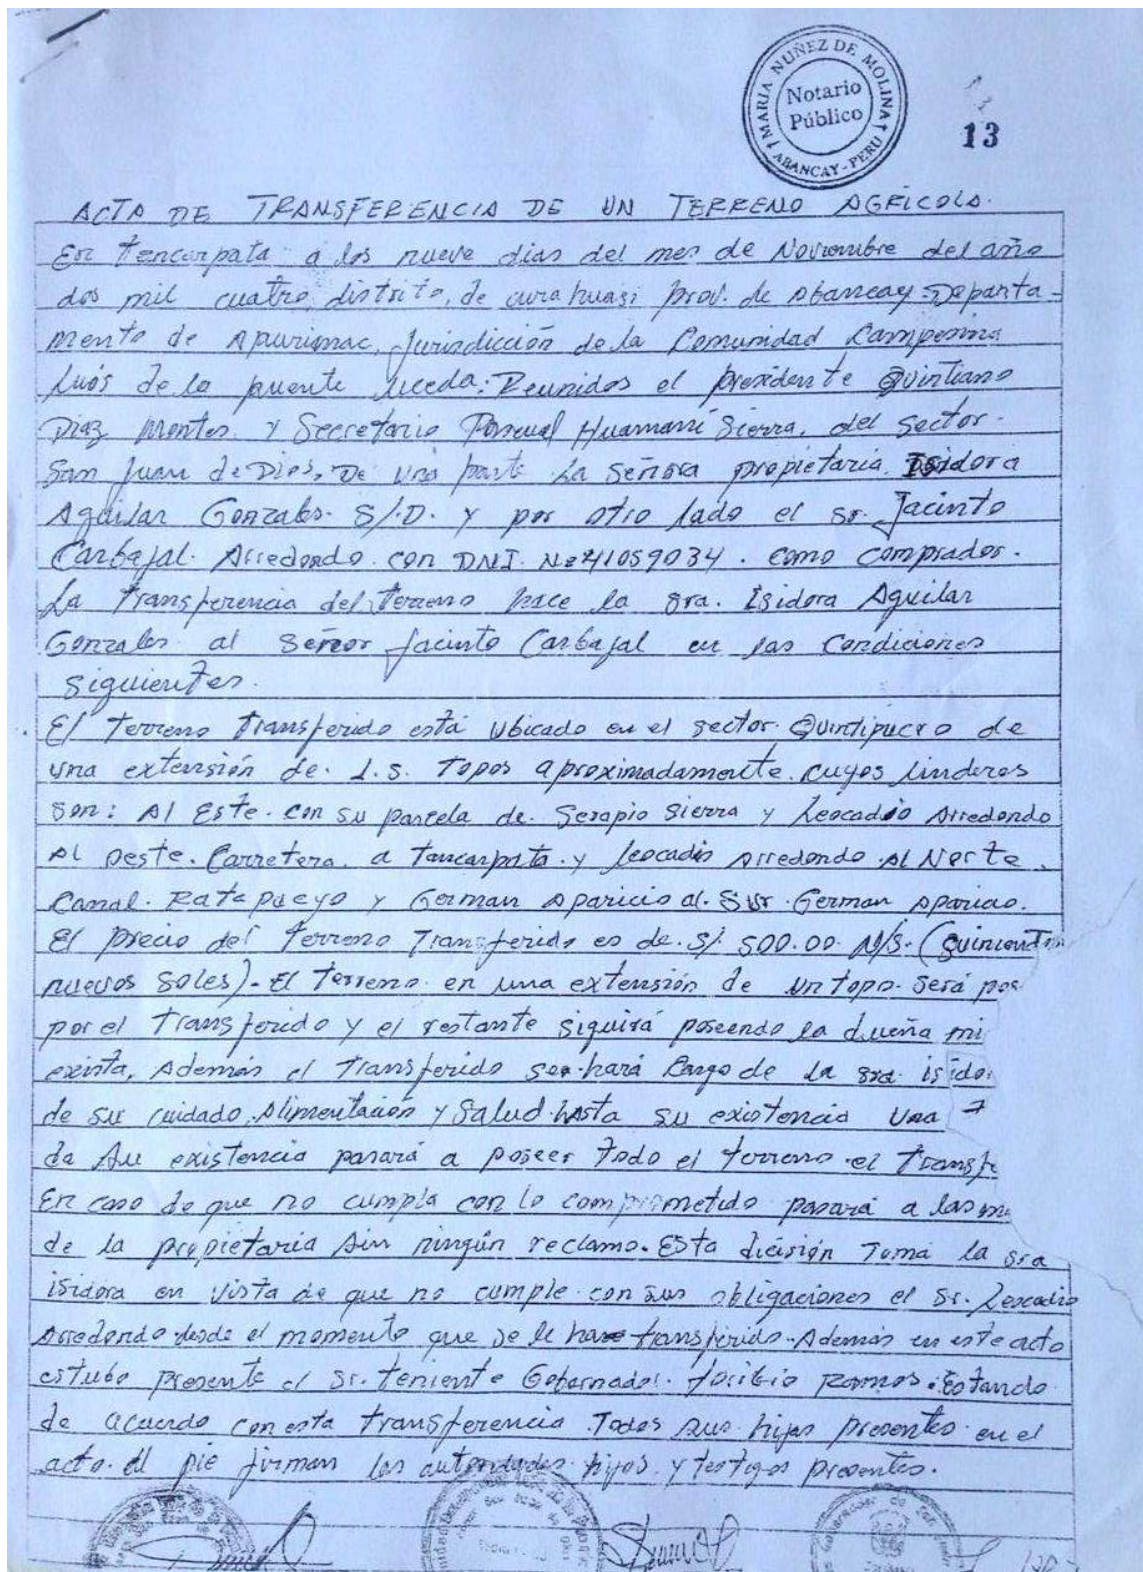 MARIA NUÑEZ DE MOLINA
Notario
Público
ABANCAY-PERU
13
ACTA DE TRANSFERENCIA DE UN TERRENO AGRÍCOLA.
En Tancarpata a los nueve dias del mes de Noviembre del año
dos mil cuatro, distrito, de curahuasi prov. de Abancay-Departa-
mento de Apurimac, Jurisdicción de la Comunidad Campesina
Luís de la puente Uceda: Reunidos el presidente Quintiano
Diaz Montes y Secretario Pascual Huamaní Sierra, del sector
San Juan de Dios, De una parte La Señora propietaria Isidora
Aguilar Gonzales. S/.D. y por otro lado el sr. Jacinto
Carbajal Arredondo con DNI. No 41059034. como comprador.
La Transferencia del Terreno hace la sra. Isidora Aguilar
Gonzales al Señor Jacinto Carbajal en las Condiciones
siguientes.
El Terreno Transferido está Ubicado en el sector Quintipucro de
una extensión de 1.5. Topos aproximadamente. cuyos linderos
son: Al Este. con su parcela de Serapio Sierra y Leocadio Arredondo
Al Oeste. Carretera a Tancarpata y leocadio Arredondo Al Norte.
Canal. Ratapucyo y German Aparicio al. Sur German Aparicio.
El precio del Terreno Transferido es de S/. 500.00 N/S. (quinient
nuevos soles). El Terreno en una extensión de un topo será pos
por el Transferido y el restante siguirá poseendo la dueña mi
exista, Además el Transferido se hará Cargo de la sra. isido
de su cuidado, Alimentación y Salud hasta su existencia una
da su existencia pasará a poseer Todo el terreno el Transfe
En caso de que no cumpla con lo comprometido pasará a las m
de la propietaria sin ningún reclamo. Esta dicisión Toma la sra
isidora en vista de que no cumple con sus obligaciones el Sr. Leocadio
Arredondo desde el momento que se le ha transferido. Además en este acto
estubo presente el Sr. teniente Gobernador. Toribio Ramos. Estando
de acuerdo con esta transferencia Todos sus hijos presentes en el
acto. Al pie firman las autoridades hijos y testigos presentes.